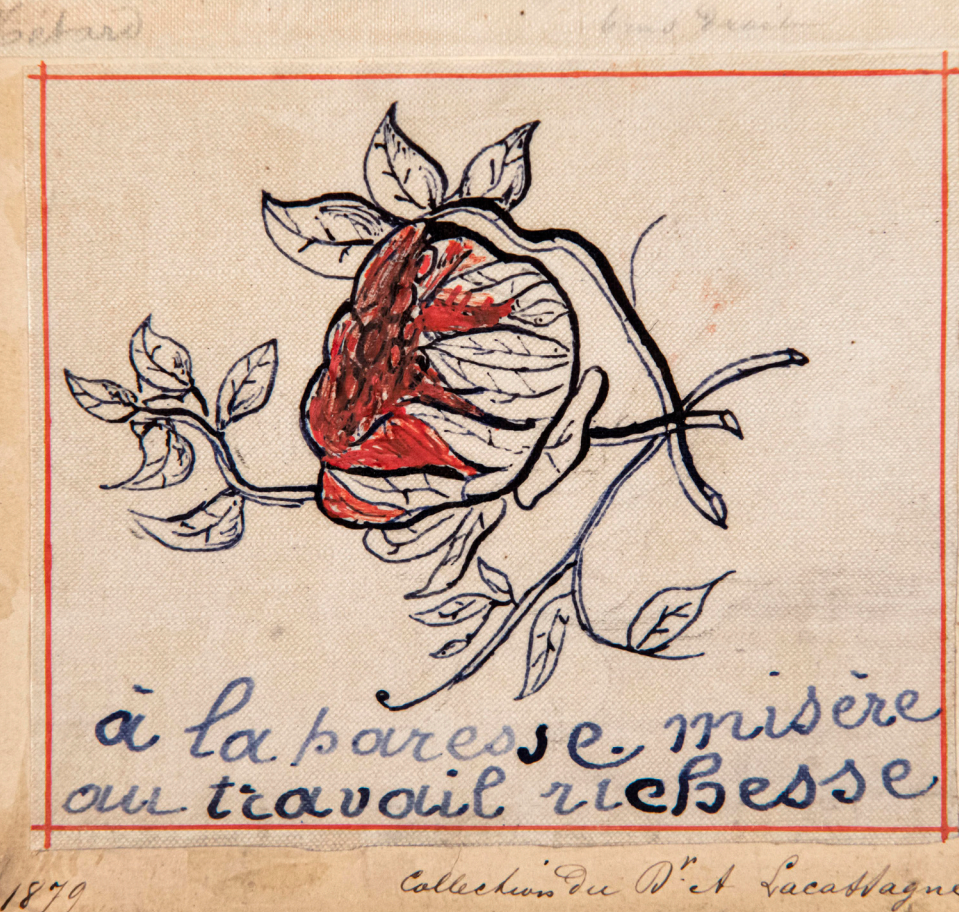 à la paresse misère
au travail richesse
1879
Collection du Dr A Lacassagne